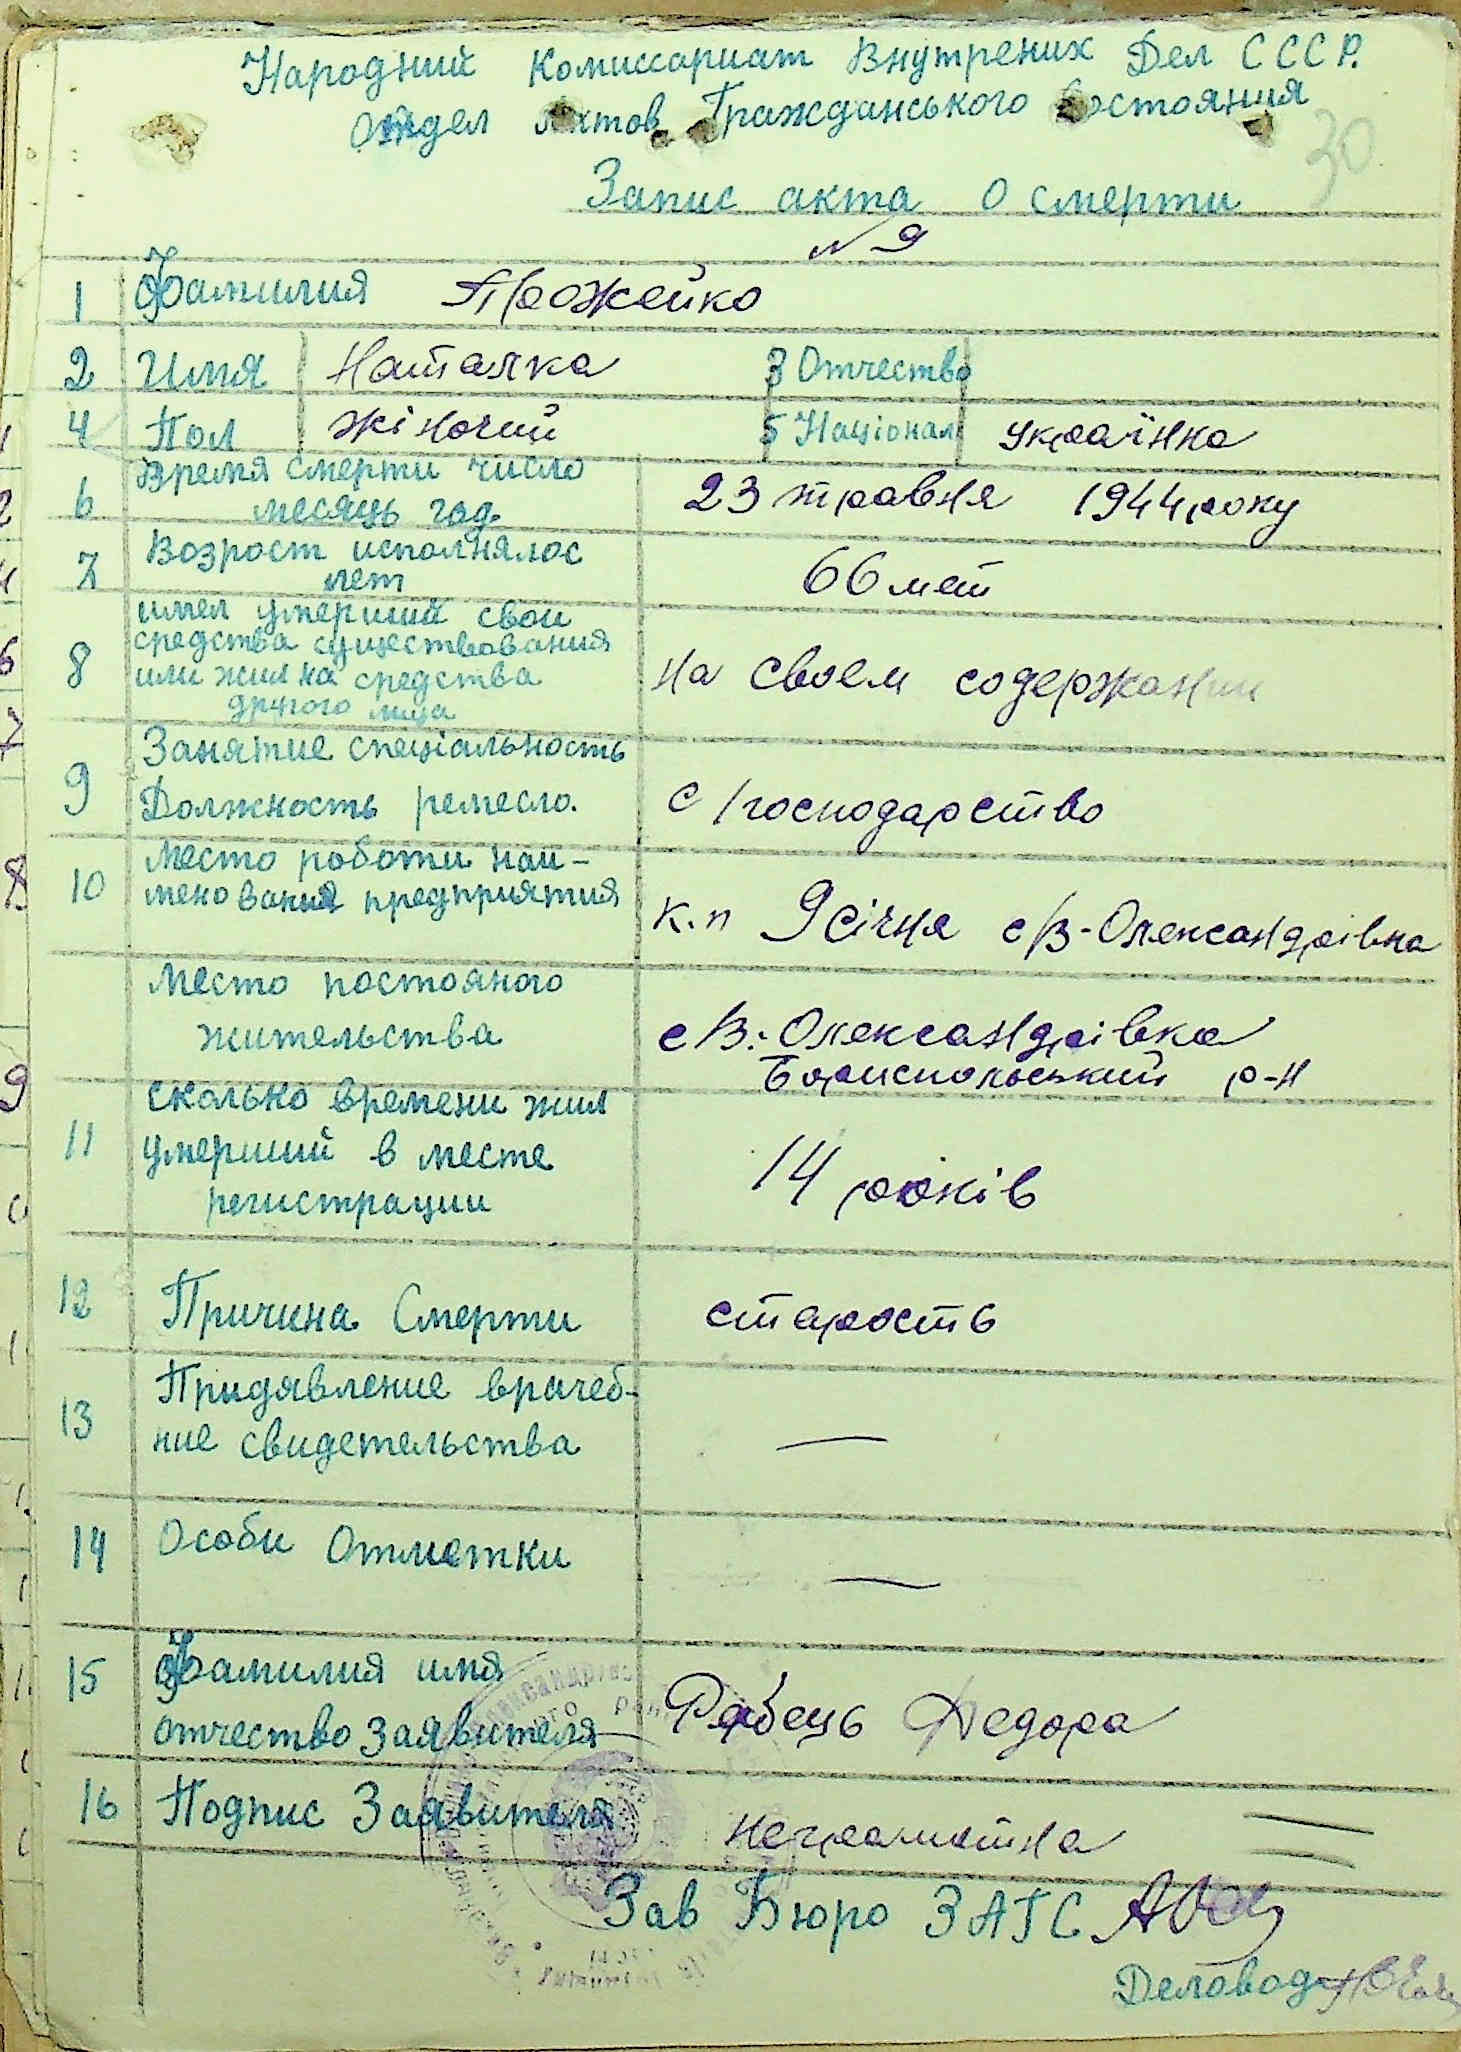 Народний Комиссариат Внутрених Дел СССР.
Отдел Актов Гражданського Состояния
30
Запис акта о смерти
№ 9
1 Фамилия Прожейко
2 Имя Наталка 3 Отчество
4 Пол жіночий 5 Націонал українка
6 Время смерти число
месяць год 23 травня 1944 року
7 Возраст исполнялос
лет 66 лет
8 имел умерший свои
средства существования
или жил на средства
другого лица
на своем содержании
9 Занятие спеціальность
Должность ремесло. с/господарство
10 Место роботи наи-
менования предприятия к.п 9 січня с/в-Олександрівка
Место постояного
жительства с/В.-Олександрівка
Бориспольський р-н
11 сколько времени жил
умерший в месте
регистрации 14 років
12 Причина Смерти старость
13 Придявление врачеб-
ние свидетельства —
14 Особи Отметки —
15 Фамилия имя
отчество Заявителя Рябець Федора
16 Подпис Заявителя неграмотна
Зав Бюро ЗАГС
Деловод